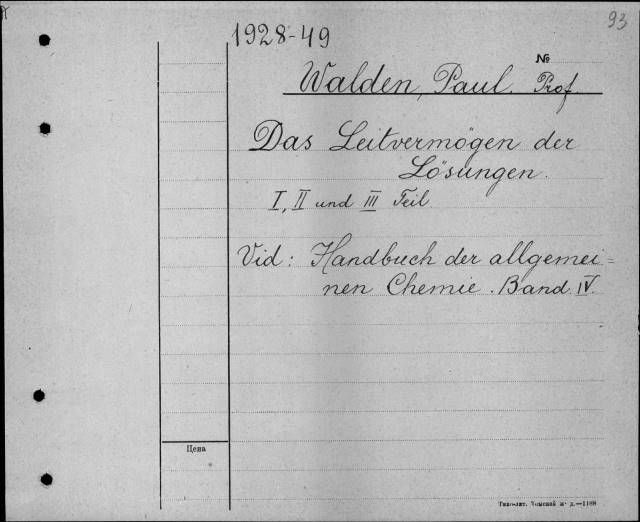 93
1928-49
№
Walden, Paul. Prof.
Das Leitvermögen der
Lösungen.
I, II und III Teil
Vid: Handbuch der allgemei=
nen Chemie. Band IV.
Цена
Типо-лит. Томской ж. д.—1188